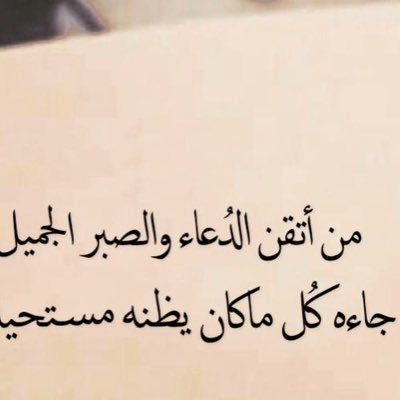 من أتقن الدُعاء والصبر الجميل
جاءه كُل ماكان يظنه مستحيلا